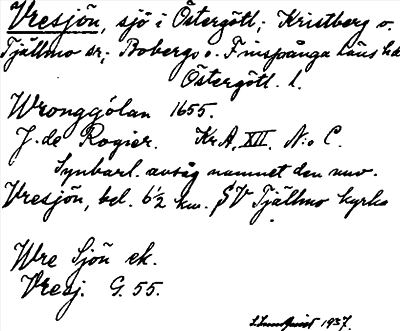 Vresjön, sjö i Östergötl; Kristberg o.
Tjällmo sr; Bobergs o. Finspånga läns hd
Östergötl. l.
Wronggölan 1655.
J. de Rogier. KrA, XII. N:o C.
Synbarl. avsåg namnet den nuv.
Vresjön, bel. 6½ km. SV Tjällmo kyrka
Wre Sjön ek.
Vresj. G. 55.
1937.